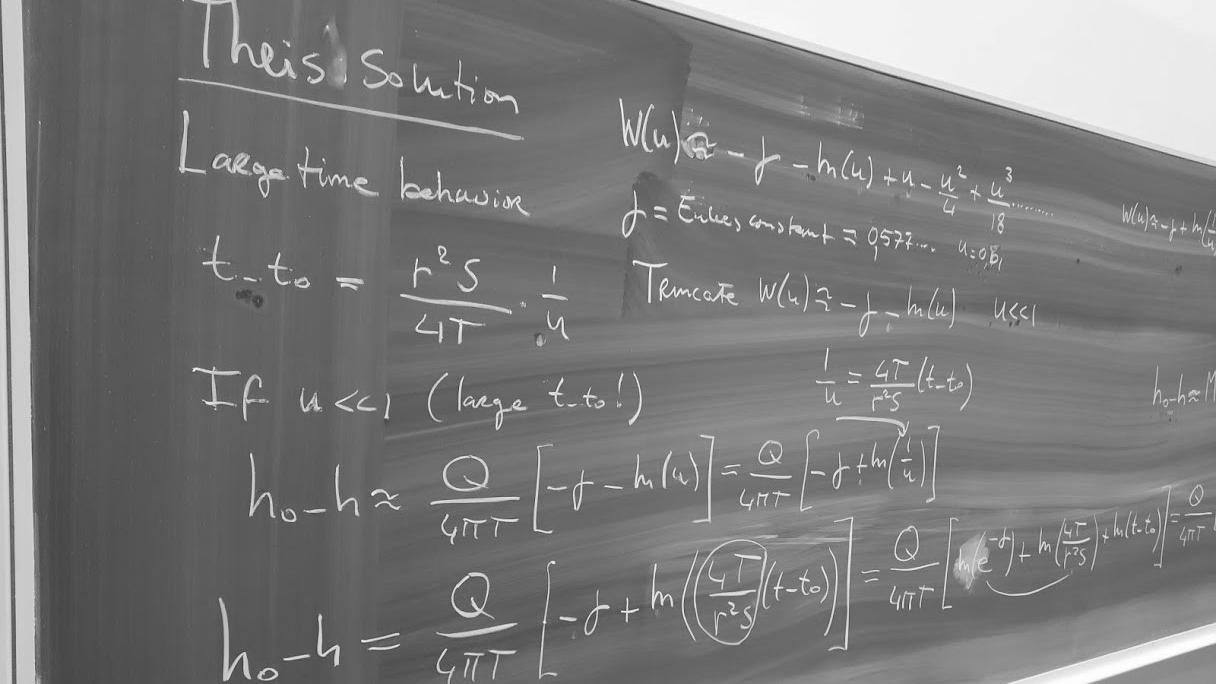 Theis Solution
Large time behavior
t-t₀ = r²S/4T · 1/u
If u<<1 (large t-t₀!)
h₀-h ≈ Q/4πT [-γ - ln(u)] = Q/4πT [-γ + ln(1/u)]
h₀-h = Q/4πT [-γ + ln((4T/r²S)(t-t₀))] = Q/4πT [ln(e^-γ) + ln(4T/r²S) + ln(t-t₀)] = Q/4πT
W(u) ≈ -γ - ln(u) + u - u²/4 + u³/18 ........
γ = Eulers constant = 0,577....
Truncate W(u) ≈ -γ - ln(u) u<<1
1/u = 4T/r²S (t-t₀)
W(u) ≈ -γ + ln(1/u
h₀-h ≈